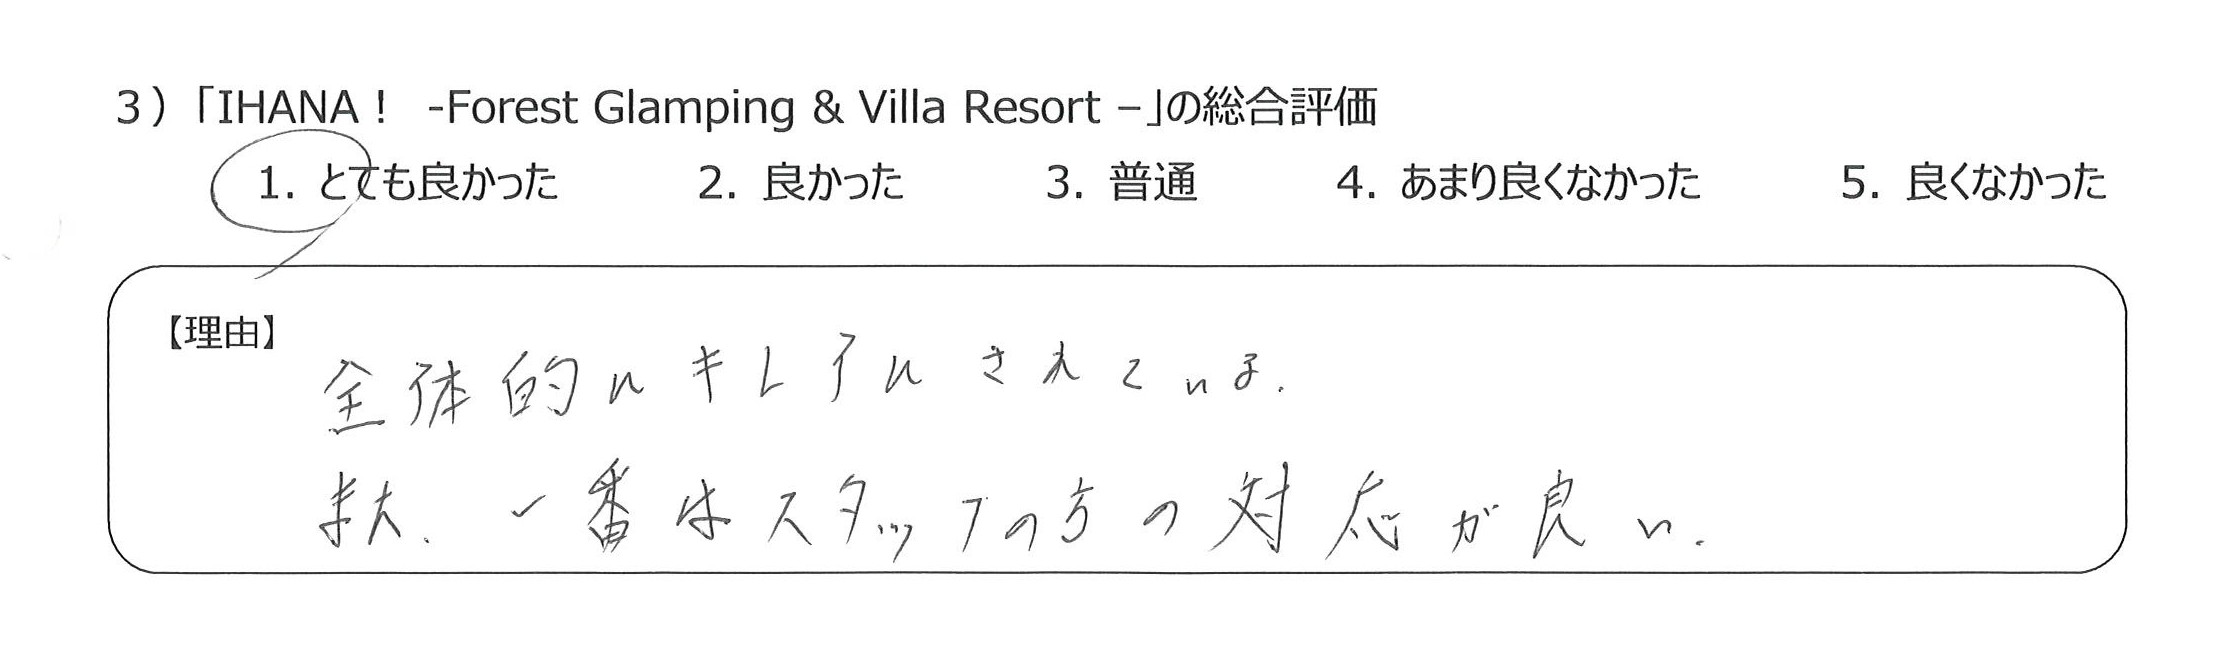 3）「IHANA！ -Forest Glamping & Villa Resort –」の総合評価
1. とても良かった 2. 良かった 3. 普通 4. あまり良くなかった 5. 良くなかった
【理由】
全体的にキレイにされている.
また. 一番はスタッフの方の対応が良い.